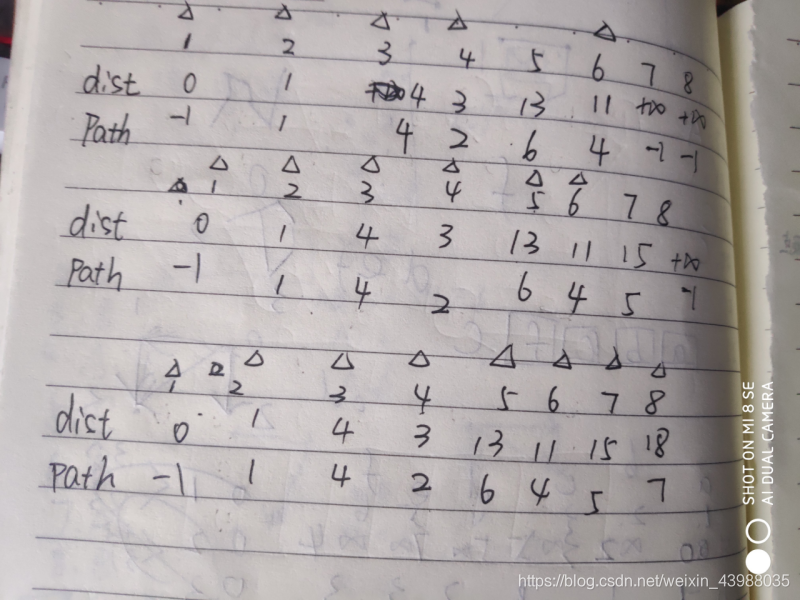 1 2 3 4 5 6 7 8
dist 0 1 4 3 13 11 +∞ +∞
Path -1 1 4 2 6 4 -1 -1
1 2 3 4 5 6 7 8
dist 0 1 4 3 13 11 15 +∞
Path -1 1 4 2 6 4 5 -1
1 2 3 4 5 6 7 8
dist 0 1 4 3 13 11 15 18
Path -1 1 4 2 6 4 5 7
SHOT ON MI 8 SE
AI DUAL CAMERA
https://blog.csdn.net/weixin_43988035